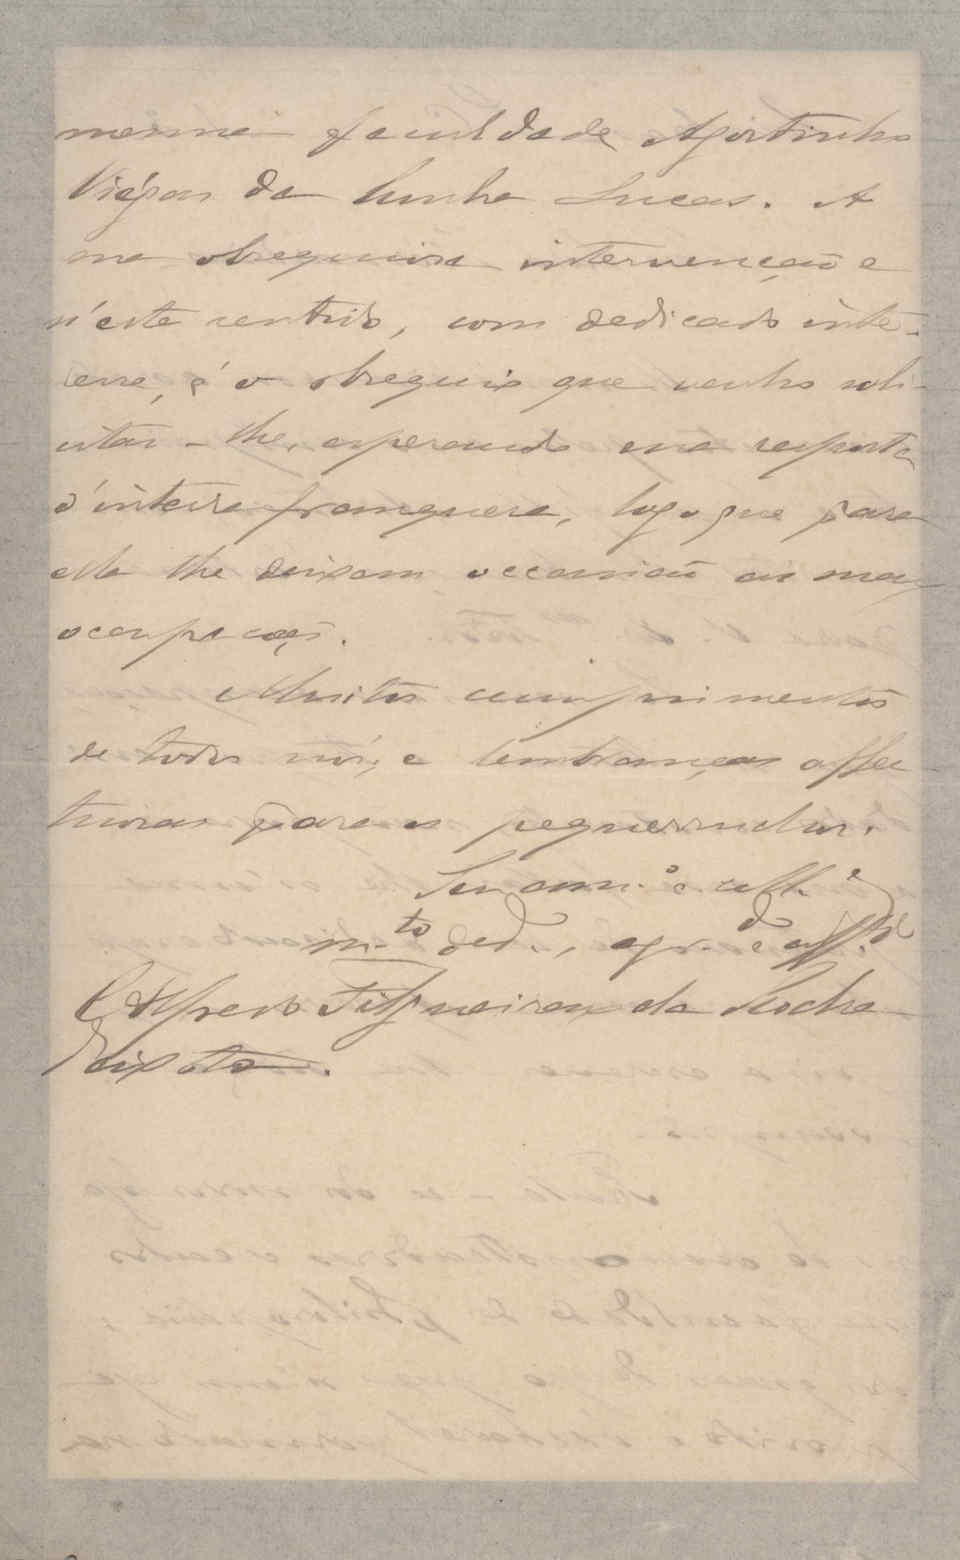 mesma faculdade Agostinho
Viégas da Cunha Lucas. A
sua obsequiosa intervenção e
n'este sentido, com dedicado inte-
resse, é o obsequio que venho soli-
citar-lhe, esperando sua resposta
d'inteira franqueza, logo que para
ella lhe deixem occasião as suas
occupações.
Muitos cumprimentos
de todos nós, e lembranças affec-
tuosas para os pequerruchos.
Seu am.º e coll.ª
m.to ded.º, agr.do e aff.
Alfredo Filgueiras da Rocha
Peixoto.